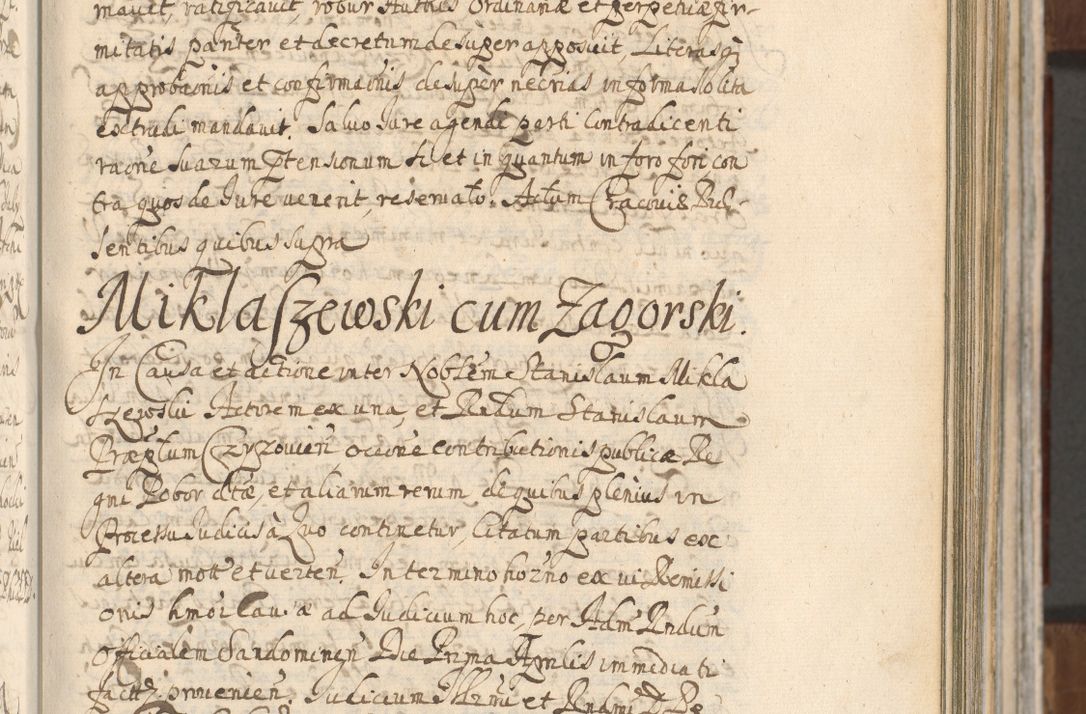 mavit, ratificavit, robur Authus Ordinariæ et perpetuæ fir-
mitatis pariter et decretum desuper apposuit, Literasq;
approbaonis et confirmaonis, desuper necrias in forma solita
extradi mandavit. Salvo Jure agendi parti Contradicenti
raone suarum ptensionum si et in quantum in foro fori con
tra quos de Jure venerit, reservato. Actum Cracoviæ Præ-
sentibus quibus supra
Miklaszewski cum Zagorski.
In Causa et actione inter Noblem Stanislaum Mikla
szewski Actorem ex una, et Rndum Stanislaum
Præptum Czyzovien oraone contributionis publicæ Re
gni Pobor dctæ, et aliarum rerum, de quibus plenius in
Processu Judicii à Quo continetur, Citatum partibus ex
altera mott et verten, In termino hozno ex vi Remissi
onis hmoi Causæ ad Judicium hoc, per Adm Rndum
Officialem Sandomirien Die Prima Aprilis immediati
factæ, provenien, Judicium Illrmi et Rndmi D. Ep